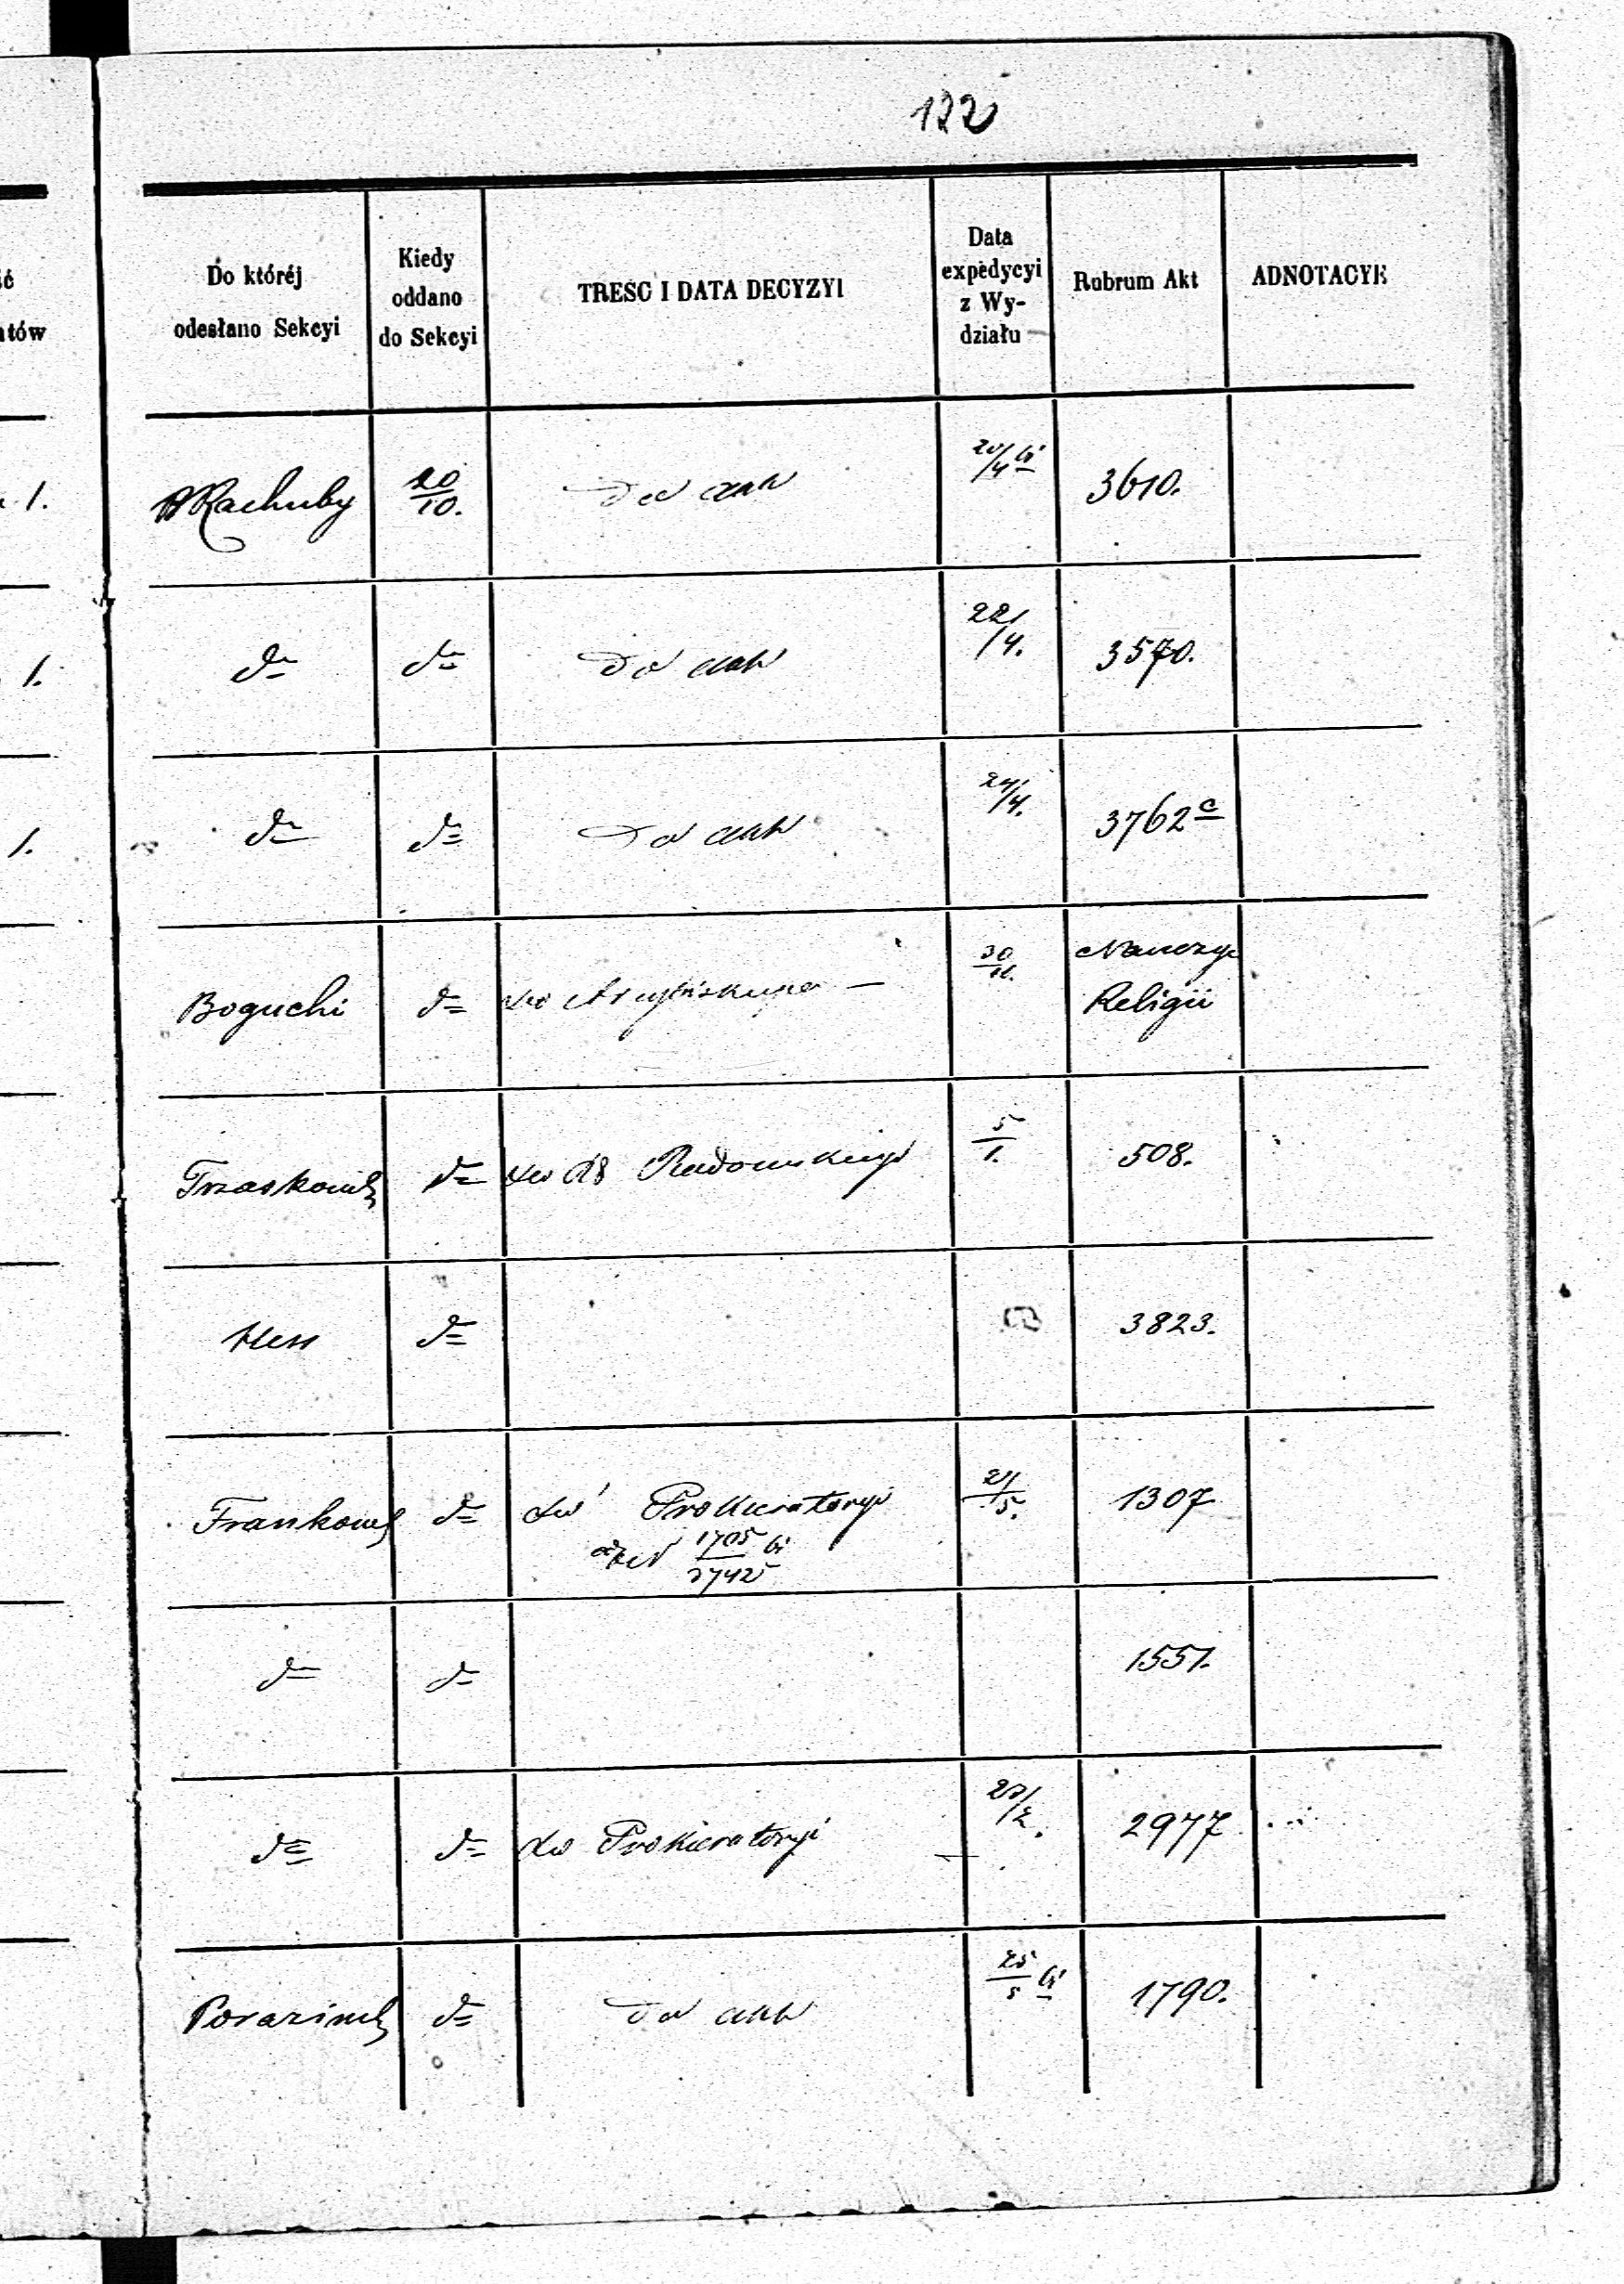 122
ć
ntów
Do któréj
odesłano Sekcyi
Kiedy
oddano
do Sekcyi
TREŚĆ I DATA DECYZYI
Data
expedycyi
z Wy-
działu
Rubrum Akt
ADNOTACYE
1. Rachuby 20/10. Do akt 20/4 3610.
1. do do Do akt 22/4. 3570.
1. do do Do akt 24/4. 3762 c
Bogucki do do Arcybiskupa — 30/11. Nauczyc
Religii
Trzaskowsk do do Radomskiego 5/1. 508.
Hess do 3823.
Frankowsk do do Prokuratoryi 21/5. 1307
1705/2742
do do 1551.
do do do Prokuratoryi 23/2. 2977
Porazinsk do Do akt 25/5 1790.